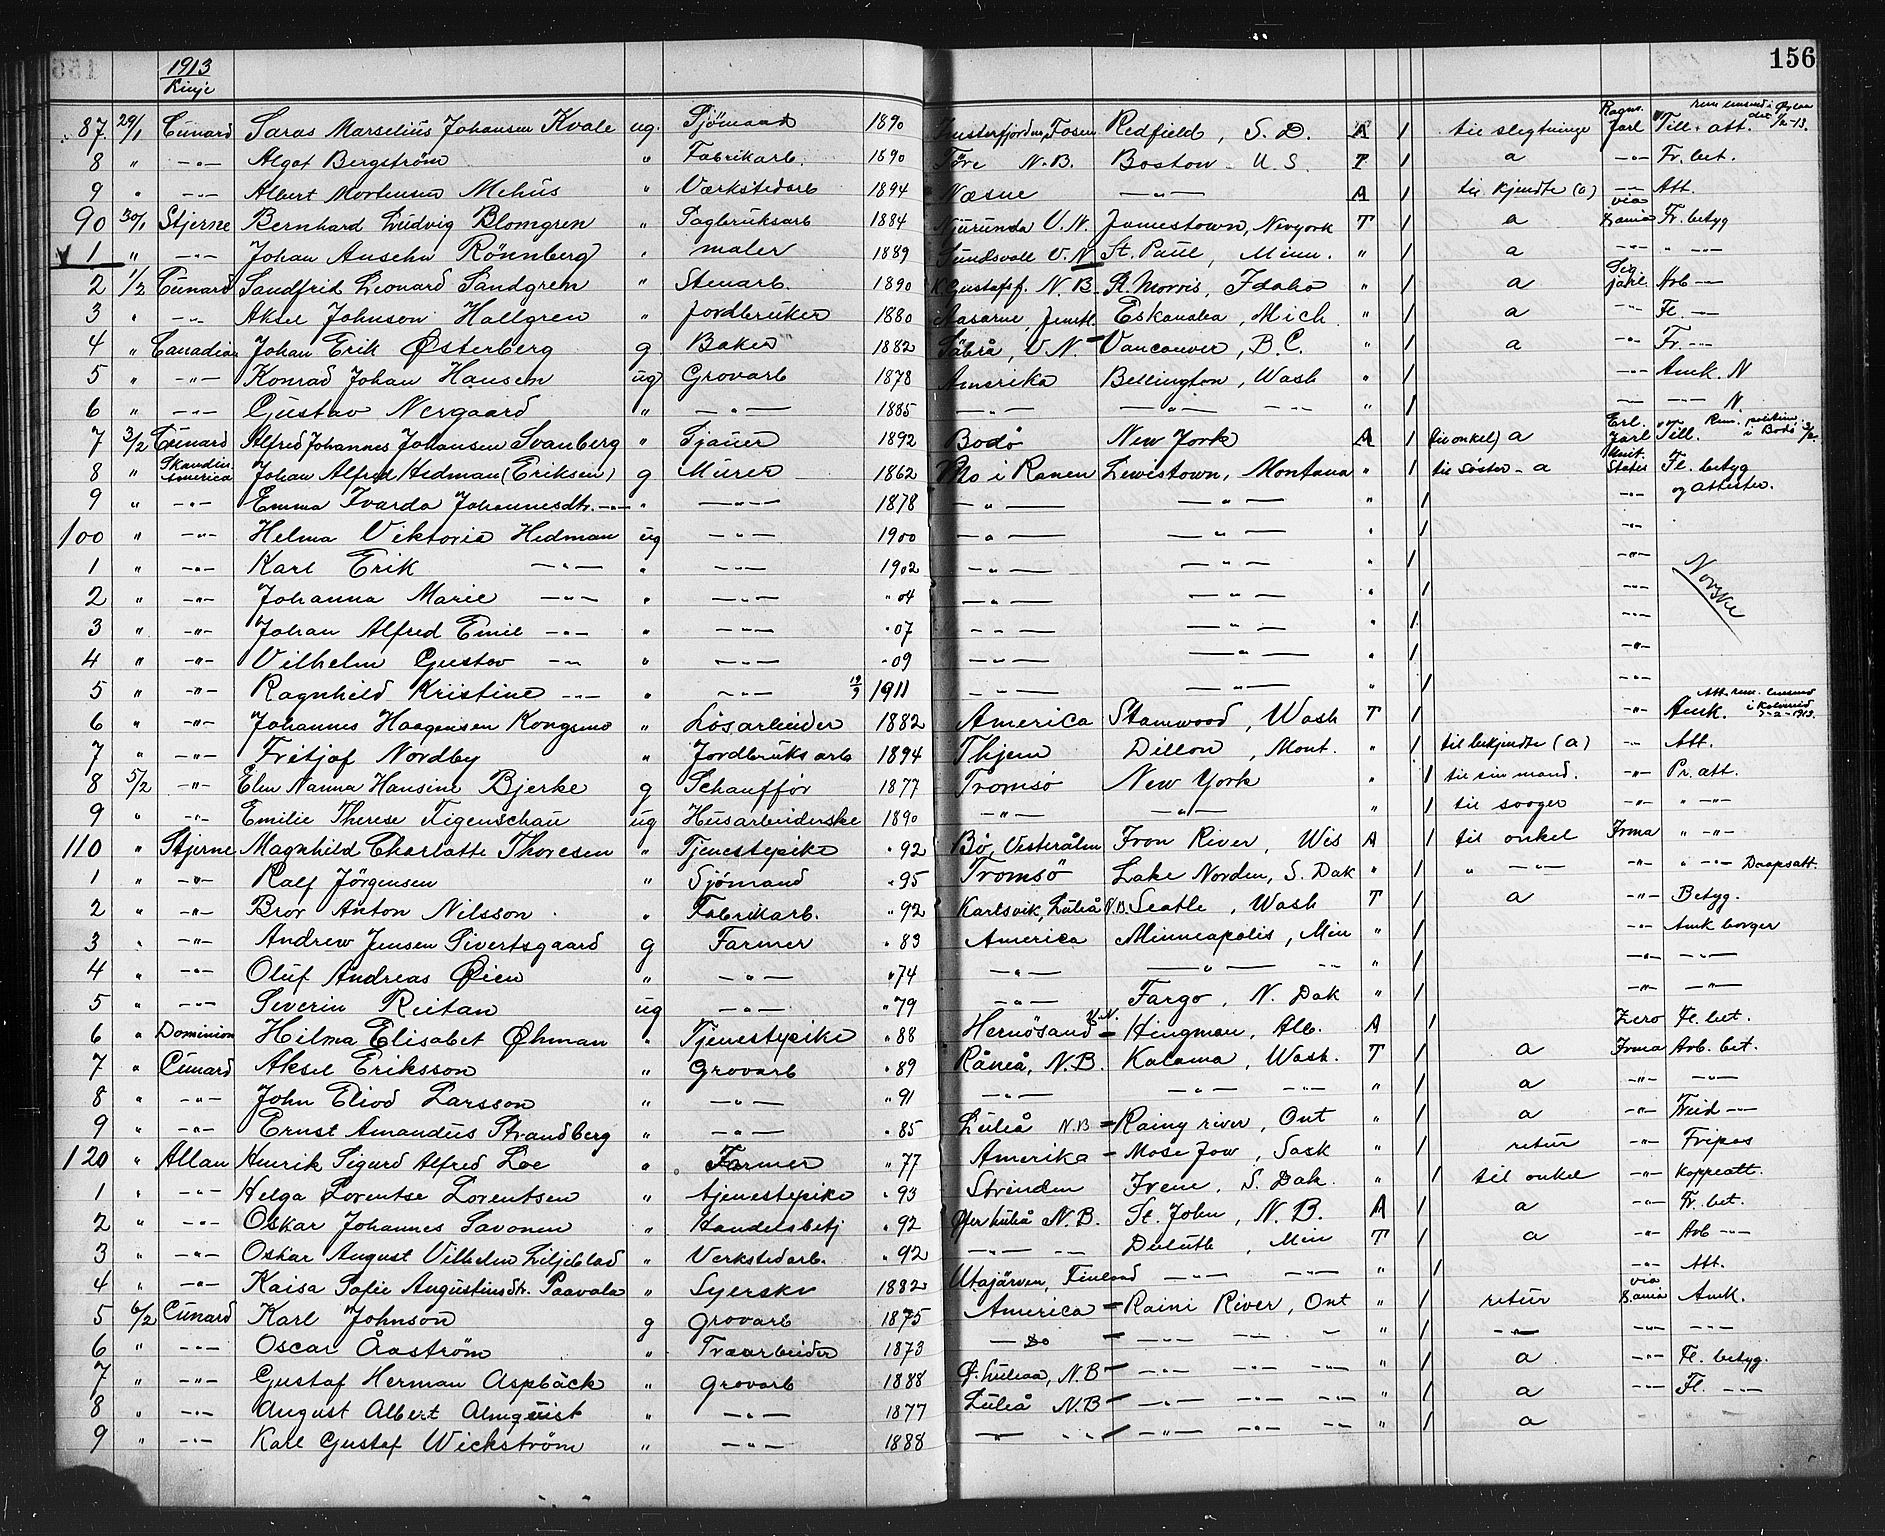 156
1913
Linje
87. 29/1 Cunard Saras Marselius Johansen Kvale ug. Sjømand 1890 Fosen Redfield, S. D. A / til slegtninge Ragn. Jarl Till. att.
8 " -"- Algot Bergström " Fabrikarb. 1890 Töre N.B. Boston U.S. T / a -"- Fr. bet.
9 " -"- Albert Mortensen Mehus " Værkstedarb 1894 Næsne -"- A / til kjendte (a) -"- Att.
90 30/1 Stjerne Bernhard Ludvig Blomgren " Sagbruksarb 1884 Njurunda V.N. Jamestown, Newyork T / a via Fr. betyg
1 " -"- Johan Anselm Rönnberg " maler 1889 Sundsvall V.N. St. Paul, Minn. " / a -"- " -"-
2 1/2 Cunard Sandfrid Leonard Sandgren " Stenarb. 1890 K Gustafsf. N.B. St. Morris, Idaho " / a Sig. jarl Arb -"-
3 " -"- Aksel Johnson Hallgren " Jordbruker 1880 Jemtl. Eskanaba, Mich. " / a -"- Fl. -"-
4 " Canadian Johan Erik Østerberg g Baker 1882 Säbrå, V.N. Vancouver, B.C. " / a -"- Fr. -"-
5 " -"- Konrad Johan Hansen ug Grovarb 1878 Amerika Bellington, Wash " / -"- Amk. N
6 " -"- Gustav Nergaard " -"- 1885 -"- -"- -"- " / -"- -"- N
7 3/2 Cunard Alfred Johannes Johansen Svanberg " Sjauer 1892 Bodø New York A / (til onkel) a Erl. Jarl Till. Rem. politim. i Bodø
8 " Skandin. America Johan Alfred Hedman (Eriksen) g Murer 1862 Mo i Ranen Lewistown, Montana " / til søster - a Unit. States Fl. betyg
og attester.
9 " -"- Emma Ivarda Johannesdtr. -"- " -"- 1878 -"- -"- " / -"-
100 " -"- Helma Viktoria Hedman ug -"- 1900 -"- -"- " / -"-
1 " -"- Karl Erik -"- " -"- 1902 -"- -"- " / -"-
Norske
2 " -"- Johanna Marie -"- " -"- "04 -"- -"- " / -"-
3 " -"- Johan Alfred Emil -"- " -"- "07 -"- -"- " / -"-
4 " -"- Vilhelm Gustav -"- " -"- "09 -"- -"- " / -"-
5 " -"- Ragnhild Kristine -"- " -"- 19/9 1911 -"- -"- " / -"-
6 " -"- Johannes Haagensen Kongsmo " Løsarbeider 1882 America Stanwood, Wash T / -"- Amk. Att. rem. lensmd
7 " -"- Fritjof Nordby " Jordbruksarb 1894 Thjem Dillon, Mont. " / til bekjendte (a) -"- Att.
8 5/2 -"- Elen Nanna Hansine Bjerke g Schauffør 1877 Tromsø New York " / til sin mand. -"- Pr. att.
9 " -"- Emilie Therese Figenschau ug Husarbeiderske 1890 -"- -"- " / til svoger -"- " -"-
110 " Stjerne Magnhild Charlotte Thoresen " Tjenestepike "92 Bø, Vesterålen Iron River, Wis A / til onkel Irma " -"-
1 " -"- Ralf Jörgensen " Sjömand "95 Tromsö Lake Norden, S. Dak " / " -"- -"- " -"- Daapsatt.
2 " -"- Bror Anton Nilsson " Fabrikarb. "92 Karlsvik, Luleå N.B. Seatle, Wash T / a -"- Betyg.
3 " -"- Andrew Jensen Sivertsgaard g Farmer "83 America Minneapolis, Min " / -"- Amk borger
4 " -"- Oluf Andreas Øien " -"- "74 -"- -"- -"- " / -"- -"-
5 " -"- Severin Reitan ug -"- "79 -"- Fargo, N. Dak " / -"- -"-
6 " Dominion Hilma Elisabet Øhman " Tjenestepike "88 Hernösand V.N. Hingman, Alb. A / Zero Fl. bet.
7 " Cunard Aksel Eriksson " Grovarb "89 Råneå, N.B. Kalama, Wash. T / a Irma Arb. bet.
8 " -"- John Eliod Larsson " -"- "91 -"- -"- -"- " / a -"- -"-
9 " -"- Ernst Amandus Strandberg " -"- "85 Luleå N.B Rainy river, Ont " / a -"- Freid -"-
120 " Allan Henrik Sigurd Alfred Loe " Farmer "77 Amerika Mose Jow, Sask " / retur -"- Fripas
1 " -"- Helga Lorentse Lorentsen " tjenestepike "93 Strinden Irene, S. Dak. " / til onkel -"- Koppeatt.
2 " -"- Oskar Johannes Savonen " Handelsbetj "92 Øfer Luleå N.B. St. John, N.B. A / a -"- Fr. bet.
3 " -"- Oskar August Vilhelm Liljeblad " Verkstedarb. "92 -"- Duluth, Min T / a -"- Arb -"-
4 " -"- Kaisa Sofie Augustinsdtr. Paavala " Syerske 1882 Utajärven, Finland -"- -"- " / -"- Att.
5 6/2 Cunard Karl Johnson g grovarb 1875 America Raini River, Ont " / retur via Amk.
6 " -"- Oscar Åraström " Træarbeider 1873 - Do -"- -"- " / -"- -"- -"-
7 " -"- Gustaf Herman Aspbäck " grovarb 1888 Ø. Luleaa, N.B -"- -"- " / a -"- Fl. betyg.
8 " -"- August Albert Almquist " -"- 1877 Luleå N.B -"- -"- " / a -"- Fl. -"-
9 " -"- Karl Gustaf Wickström " -"- 1888 -"- -"- -"- " / a